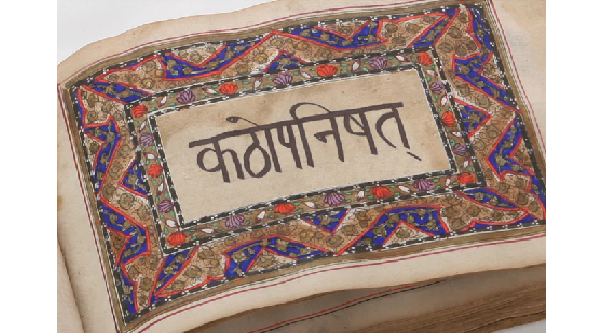 कठोपनिषत्